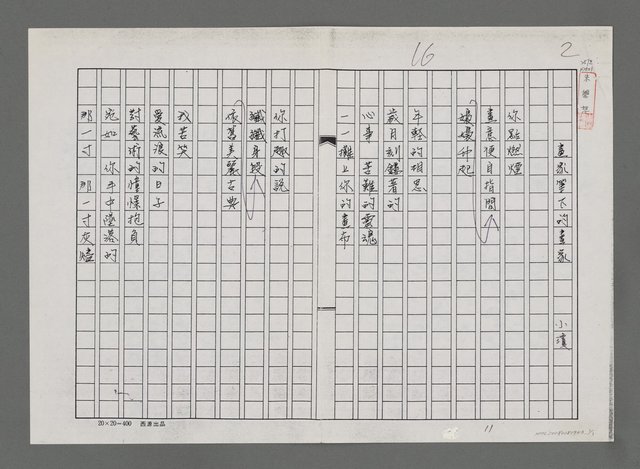 16
2
畫家筆下的畫家 小濱
你點燃煙
畫意便自指間
嬝嬝升起
年輕的相思
歲月刻鏤著的
心事 苦難的靈魂
一一攤上你的畫布
你打趣的說
纖纖身段
依舊美麗古典
我苦笑
愛流浪的日子
對藝術的憧憬抱負
宛如 你手中瑩落的
那一寸 那一寸灰燼
20×20=400
11